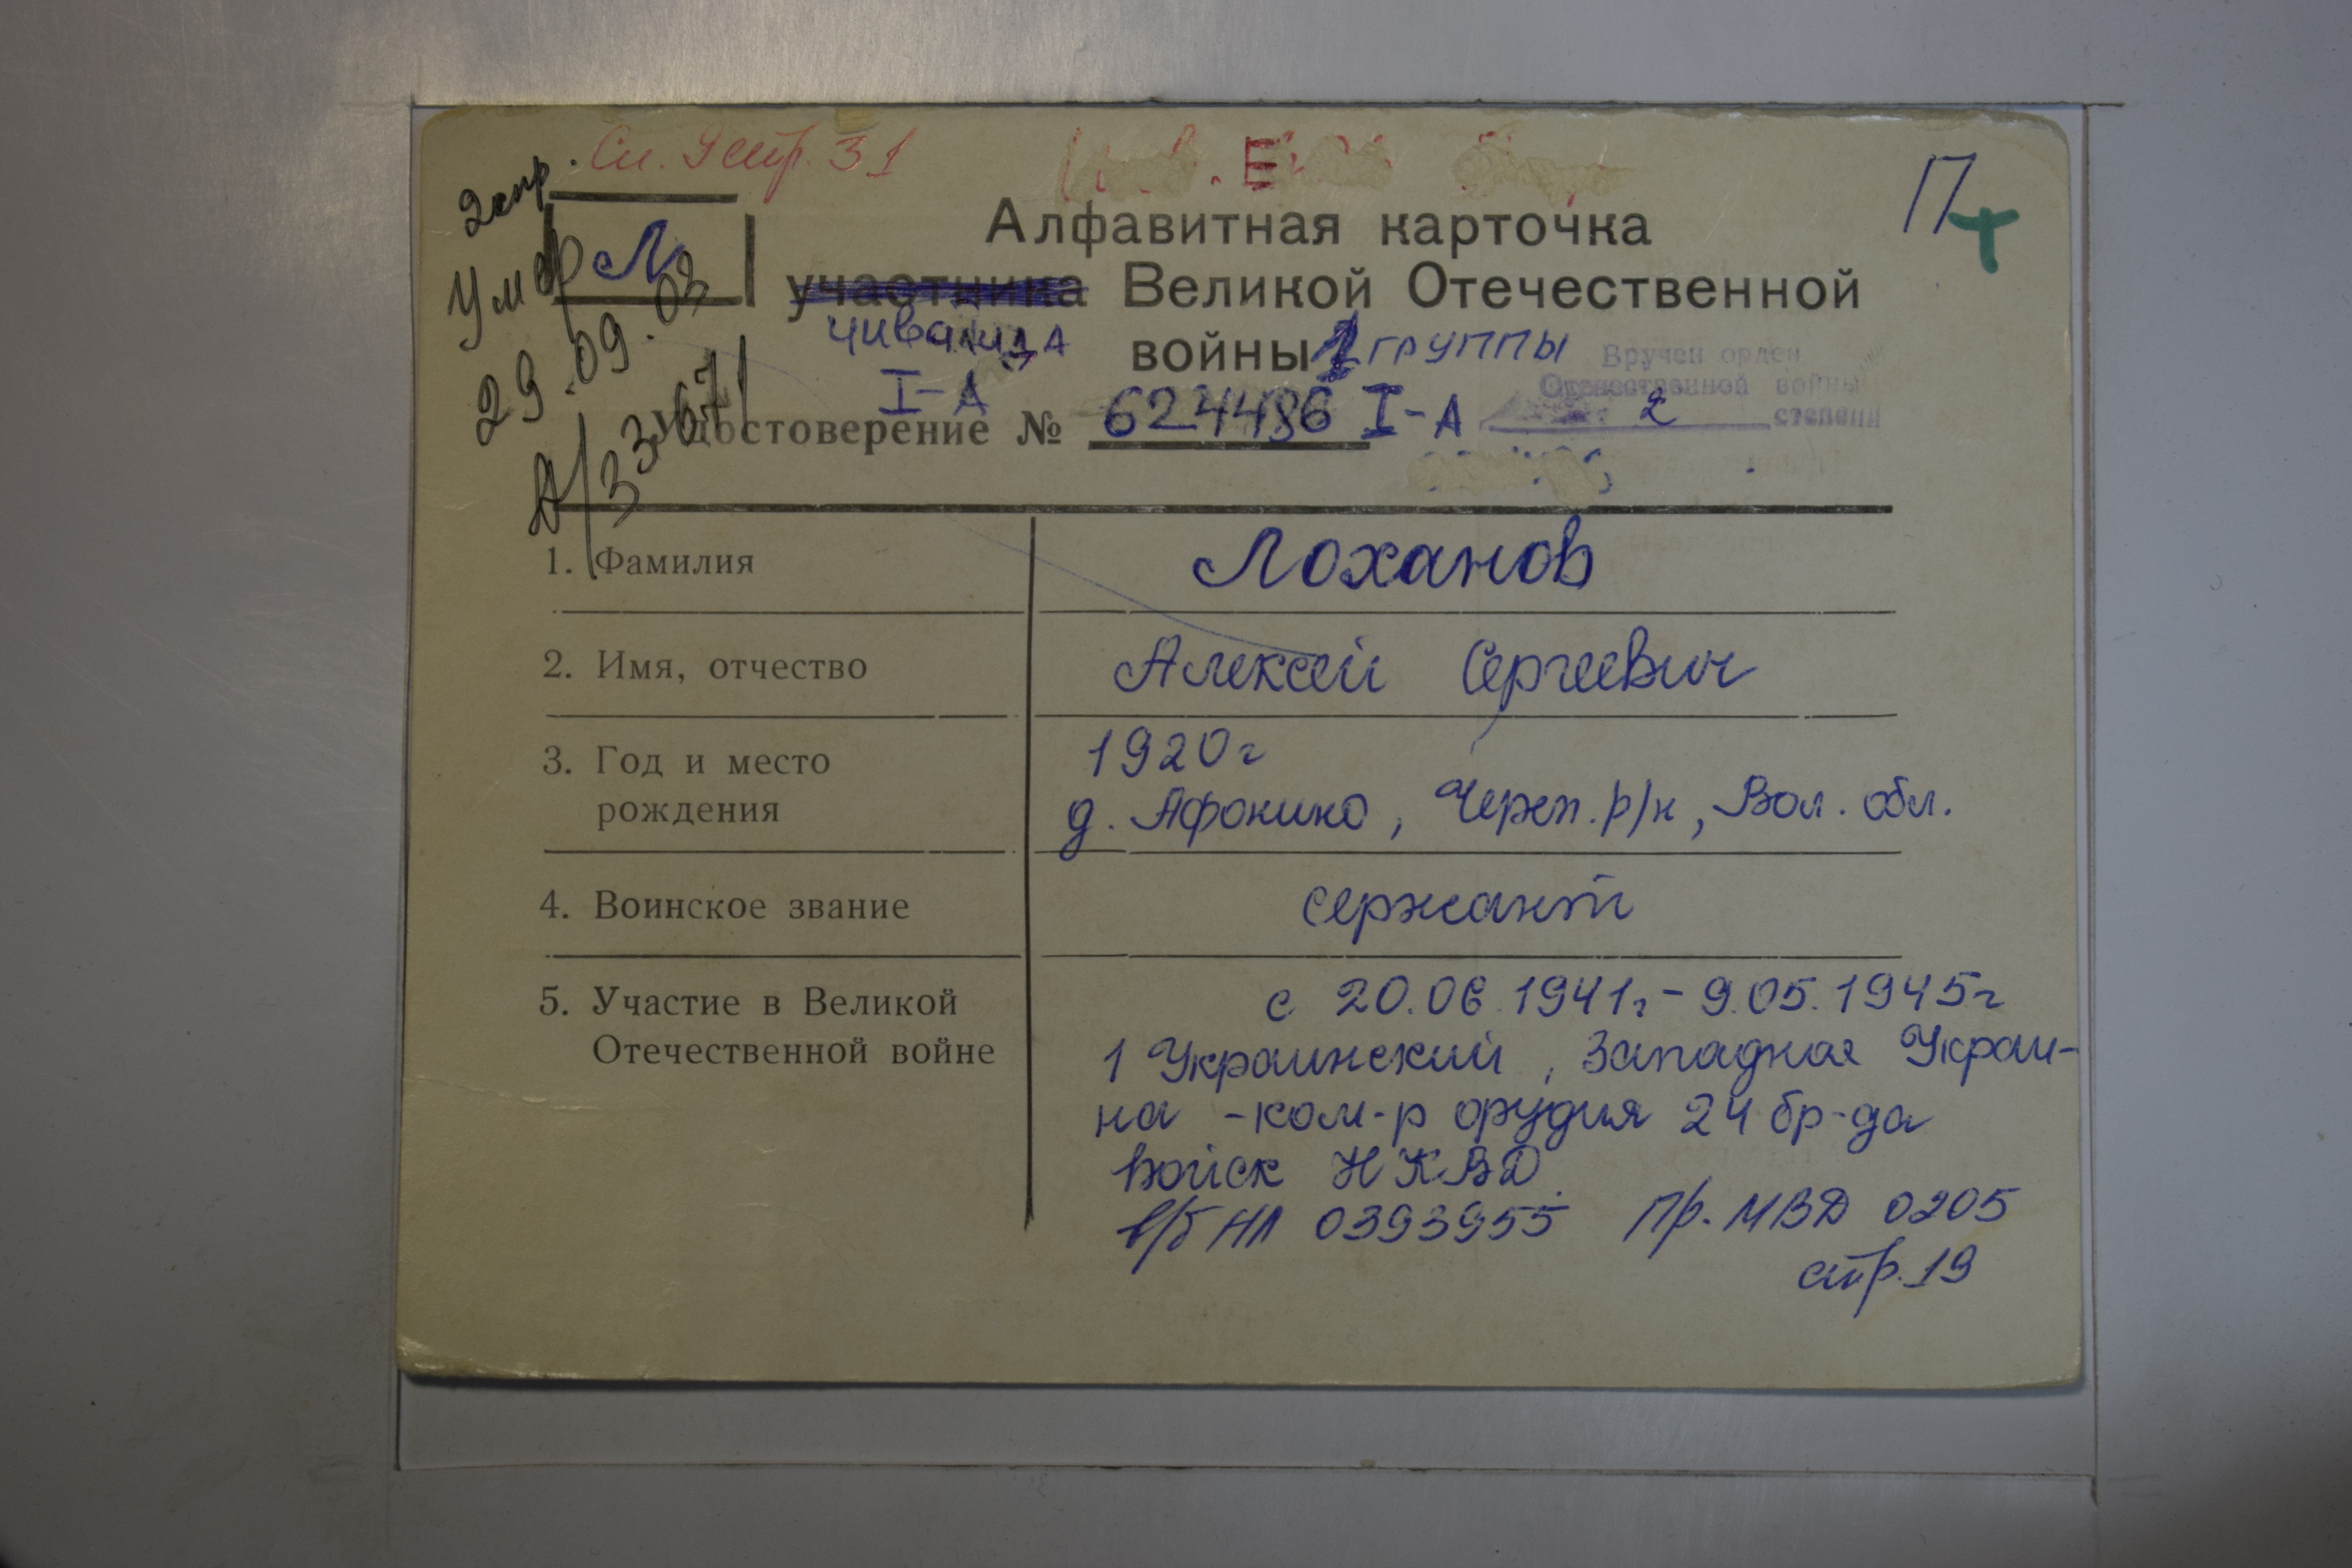 Сп. 9 стр. 31
2 стр.
П
Л
Алфавитная карточка
участника Великой Отечественной
инвалида
войны 1 группы
Вручен орден
Отечественной войны
2 степени
I-А
Удостоверение № 624486 I-А
Умер
29.09.03
1. Фамилия
Лоханов
2. Имя, отчество
Алексей Сергеевич
3. Год и место
рождения
1920г
д. Афонино, Череп. р/н, Вол. обл.
4. Воинское звание
сержант
5. Участие в Великой
Отечественной войне
с 20.06.1941г - 9.05.1945г
1 Украинский, Западная Украи-
на - ком-р орудия 24 бр-да
войск НКВД
в/б НЛ 0393955 Пр. МВД 0205
стр. 19